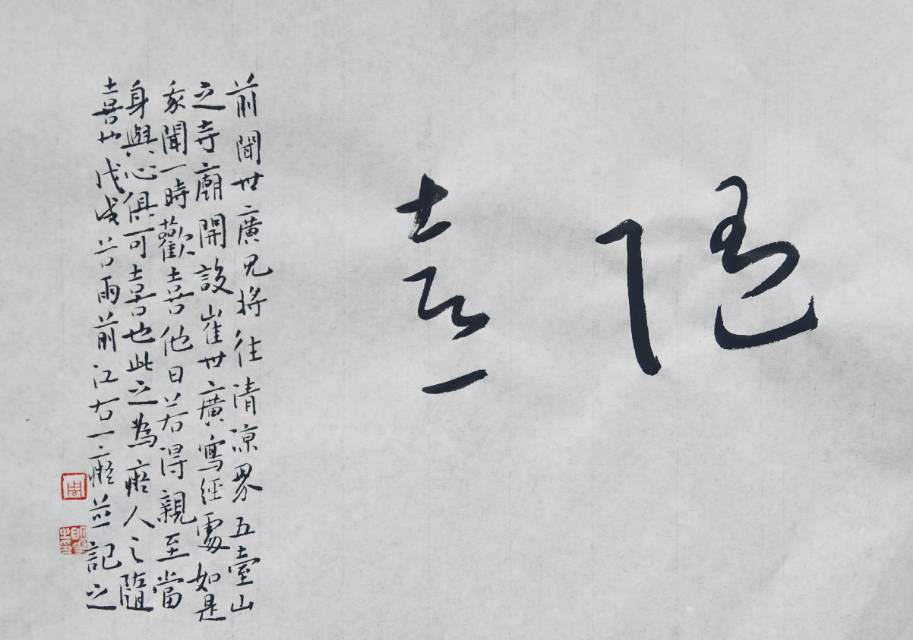 随喜
前聞世廣兄將往清涼界五臺山
之寺廟開設崔世廣寫經處如是
我聞一時歡喜他日若得親至當
身與心俱可喜也此之為癡人之隨
喜也戊戌谷雨前江右一癡並記之
周